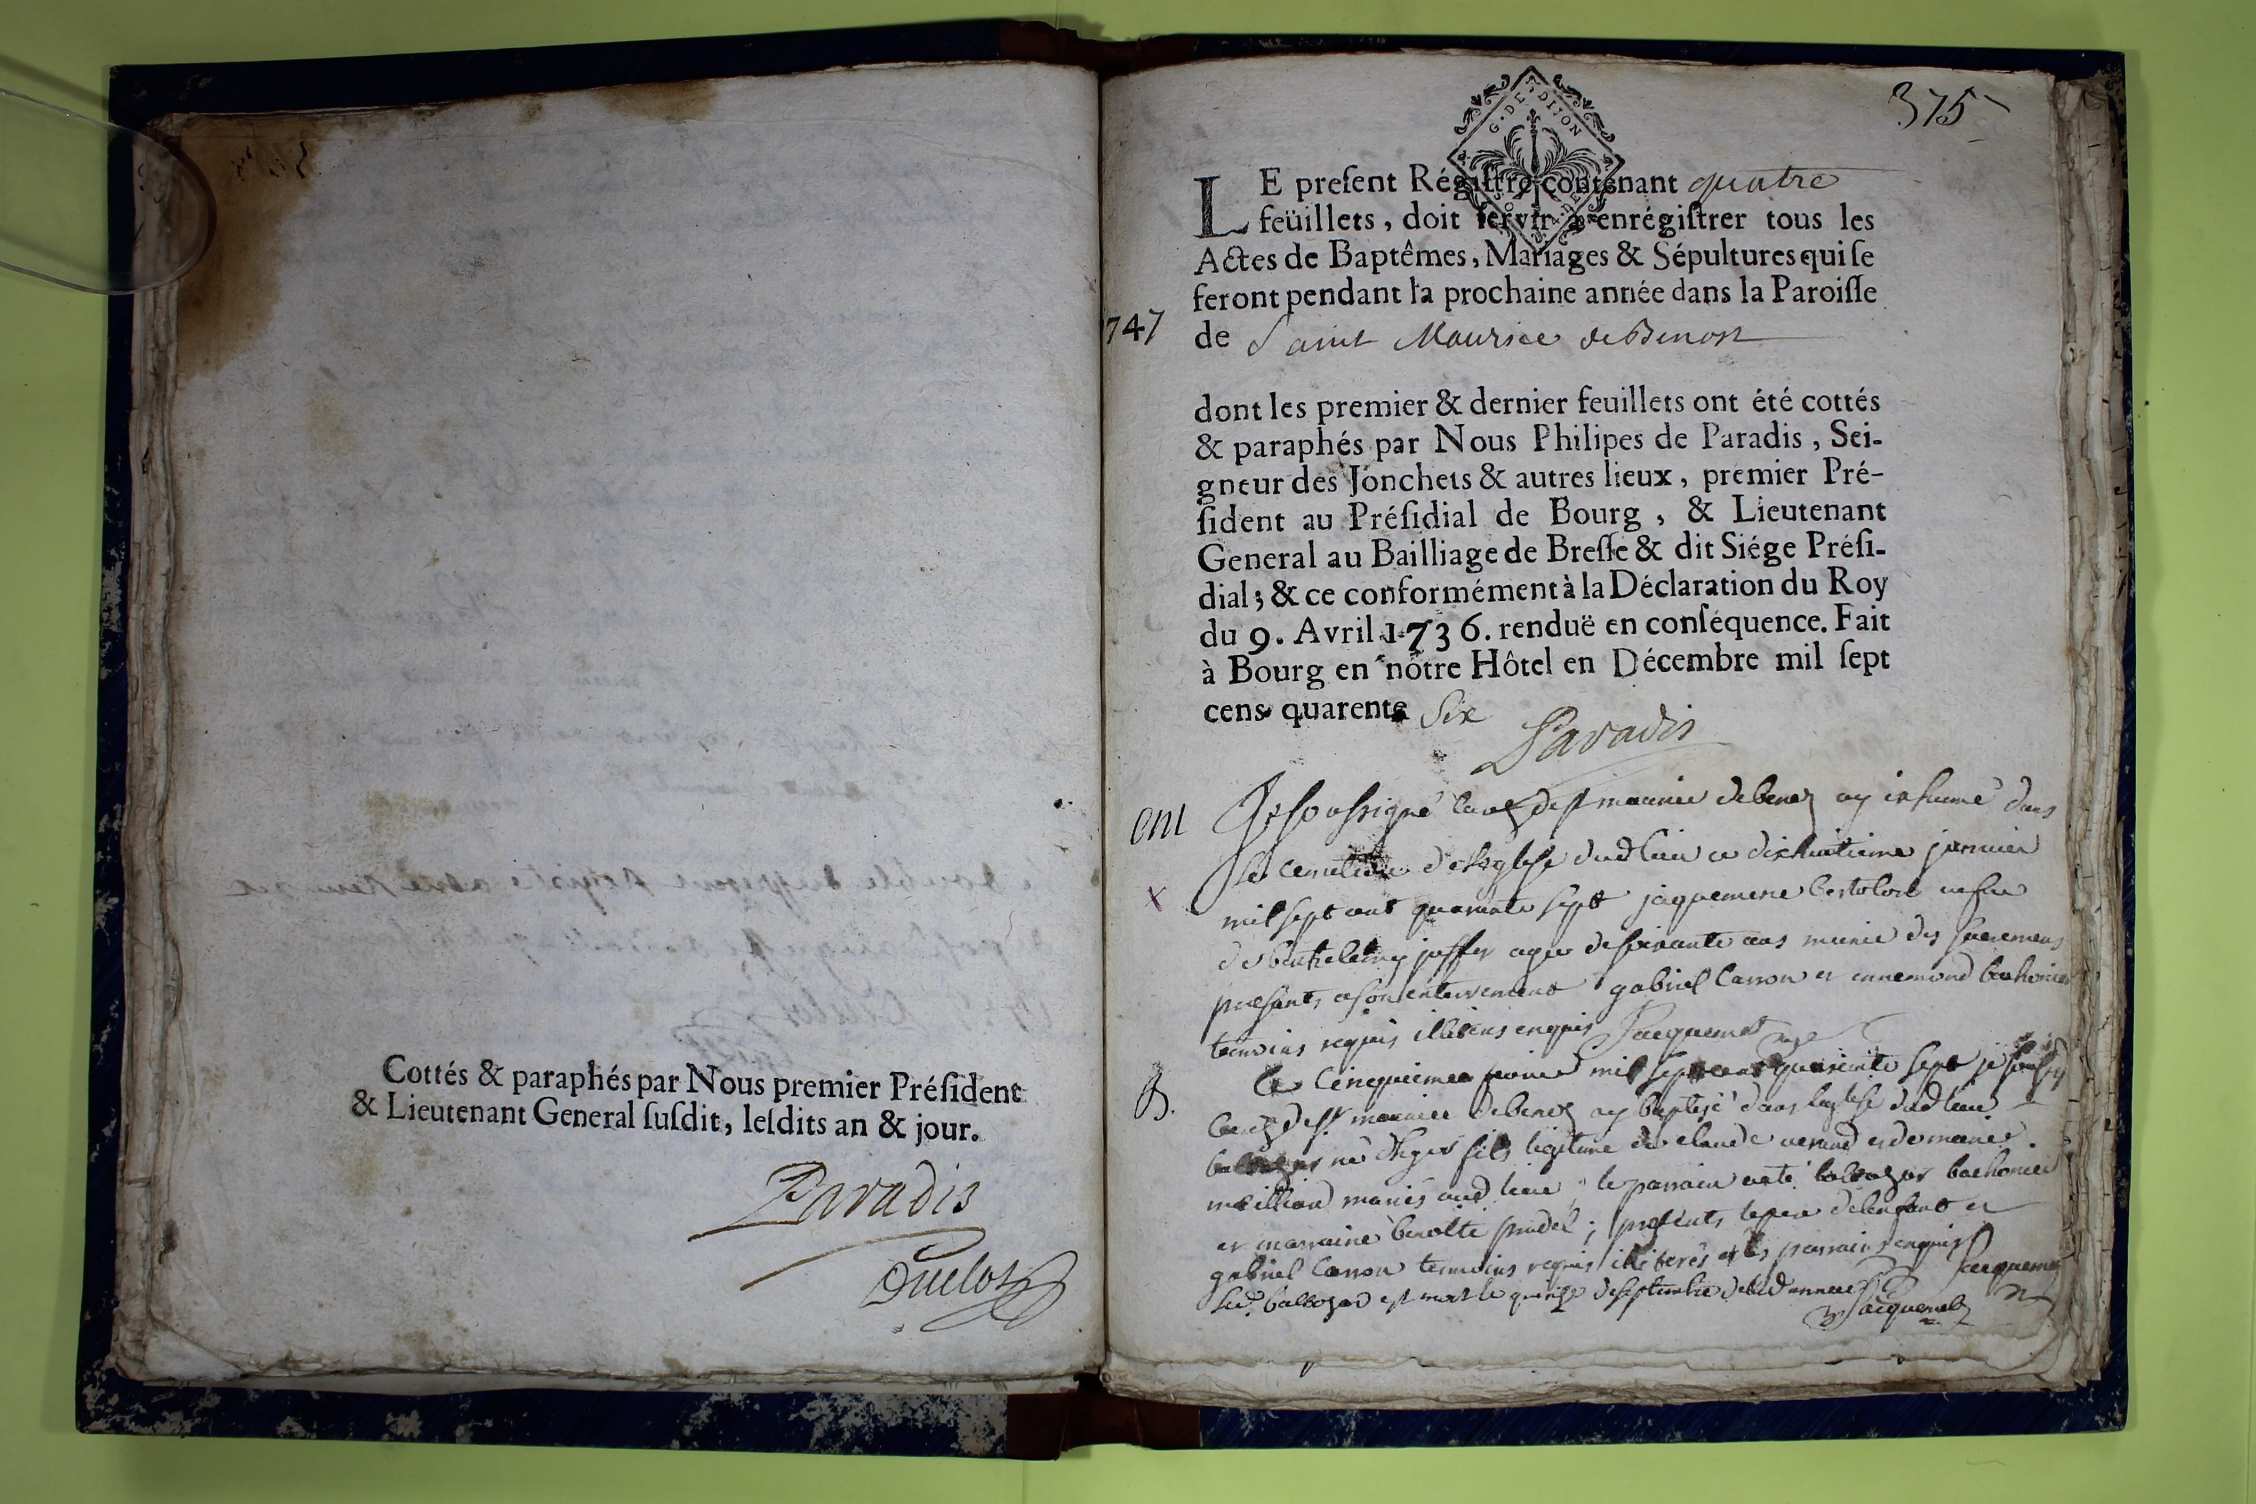 Cottés & paraphés par Nous premier Préſident
& Lieutenant General ſuſdit, leſdits an & jour.
Paradis
Duclos
375
G. DE DIJON
LE preſent Régiſtre contenant quatre
feüillets, doit ſervir a enrégiſtrer tous les
Actes de Baptêmes, Mariages & Sépultures qui ſe
feront pendant la prochaine année dans la Paroiſſe
1747
de Saint Maurice de Benost
dont les premier & dernier feuillets ont été cottés
& paraphés par Nous Philipes de Paradis, Sei-
gneur des Jonchets & autres lieux, premier Pré-
ſident au Préſidial de Bourg, & Lieutenant
General au Bailliage de Breſſe & dit Siége Préſi-
dial; & ce conformément à la Déclaration du Roy
du 9. Avril 1736. renduë en conſéquence. Fait
à Bourg en nôtre Hôtel en Décembre mil ſept
cens quarente Six
Paradis
Je soussigné curé de st maurice de benoz ay inhumé dans
le cemetiere de l'eglise dud lieu ce dixhuitieme janvier
mil sept cent quarante sept jaquemene bertolot
de barthelemy agée de soixante ans munie des sacremens
presents a son enterrement gabriel Carron et ennemond bachonier
temoins requis illiteres enquis Jacquemet
B.
Le Cinquieme mil sept cent quarante sept je soussig
curé de st maurice de benoz ay baptisé dans l'eglise dud lieu
baltazar né d'hyer fils legitime de claude et de marie
mariés aud lieu, le parrain a eté baltazar bachonier
et marraine benoite ; presents le pere de l'enfant et
gabriel Carron temoins requis illiterés et les parrains enquis Jacquemet
led. baltazard est mort le quinze de septembre de lad année
Jacquemet